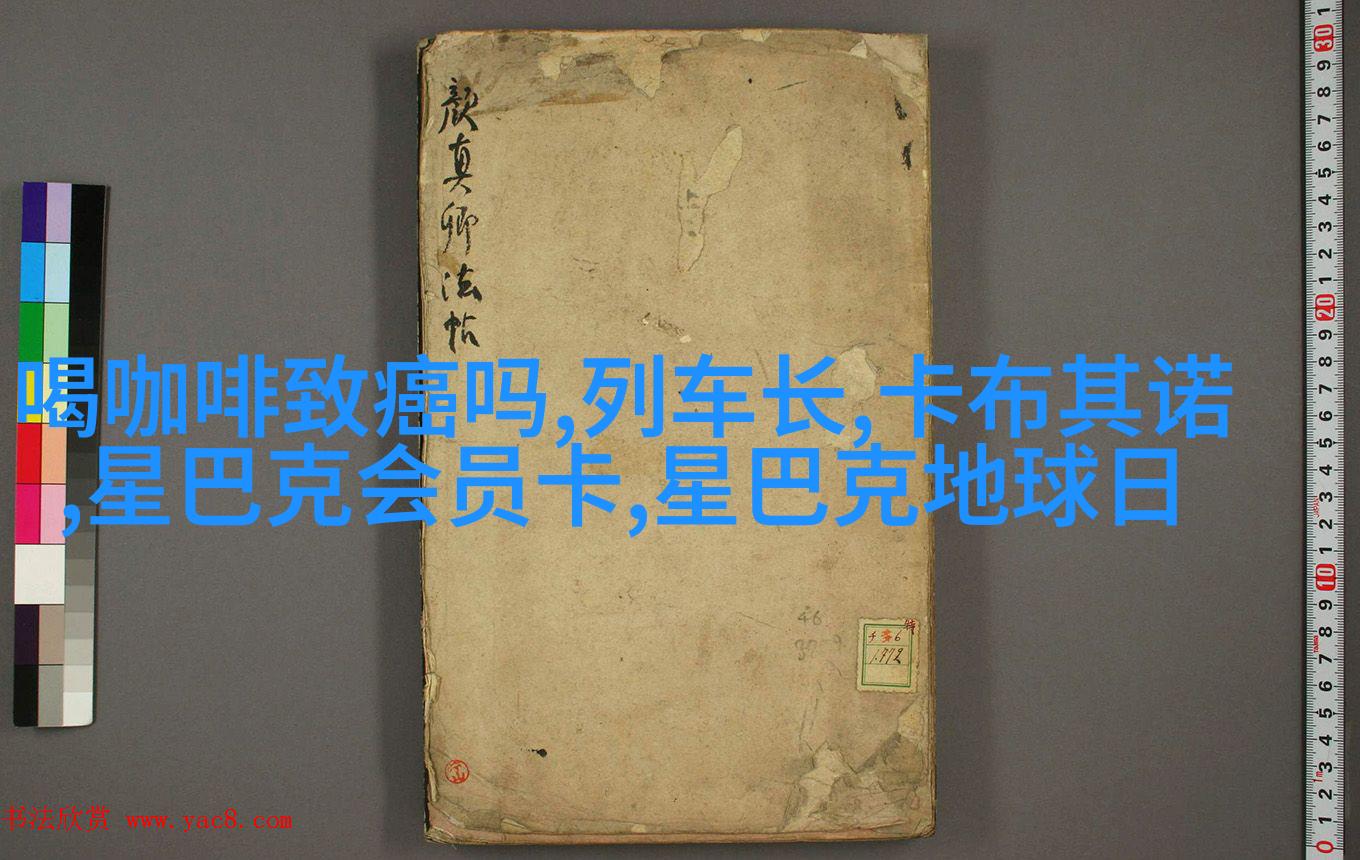 顔真卿法帖
喝咖啡致癌吗,列车长,卡布其诺
,星巴克会员卡,星巴克地球日
46
特
1772
书法欣赏 www.yac8.com